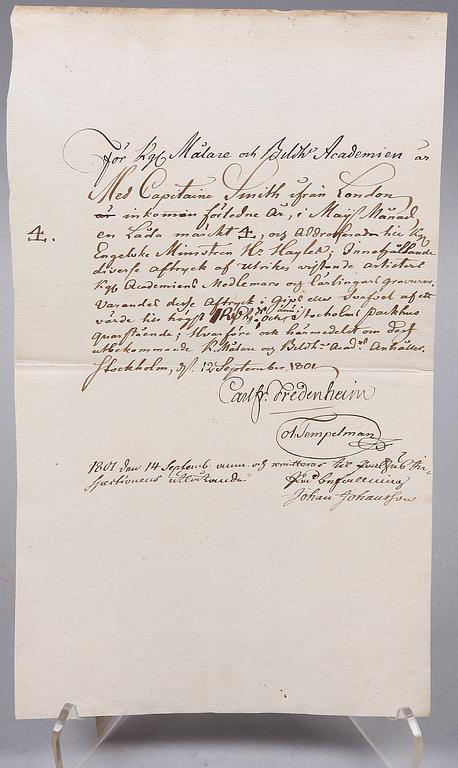 För Kgl. Målare och Bildh. Academien är
Med Capitaine Smith ifrån London
är inkommen förledne År, i Maji Månad
4. en Låda märkt 4, och Addresserad till Kgl.
Engelske Ministren Hr Haylet; Innehållande
diverse aftryck af utrikes vistande artisters
Kgl. Academiens Medlemars och Lärlingars gravurer.
Varandes desse aftryck i Gips och Svafvel af ett
värde till högst Rdr och ännu i Stockholms packhus
qvarstående; Hvarföre och härmedelst om dess
utbekommande K. Målare och Bildh. Acad. Anhåller.
Stockholm, d. 12 September 1801.
Carl Fr. Fredenheim
Ol. Tempelman
1801 den 14 Septemb. och remitteras til In-
spectionens utlåtande.
På befallning
Johan Johansson